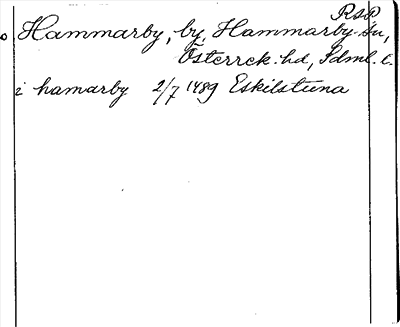 RSP
Hammarby, by, Hammarby sn,
Österrek. hd, Sdml. l.
i hamarby 2/7 1489 Eskilstuna